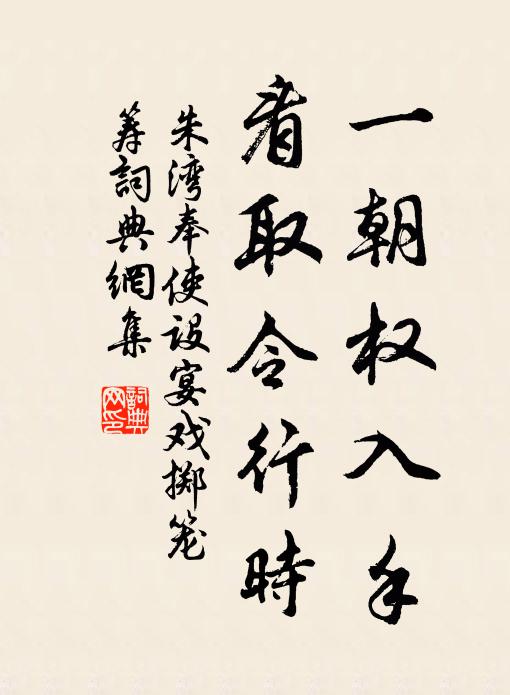 一朝权入手
看取令行時
朱湾奉使设宴戏掷笼
筹詞典網集
詞典
网印